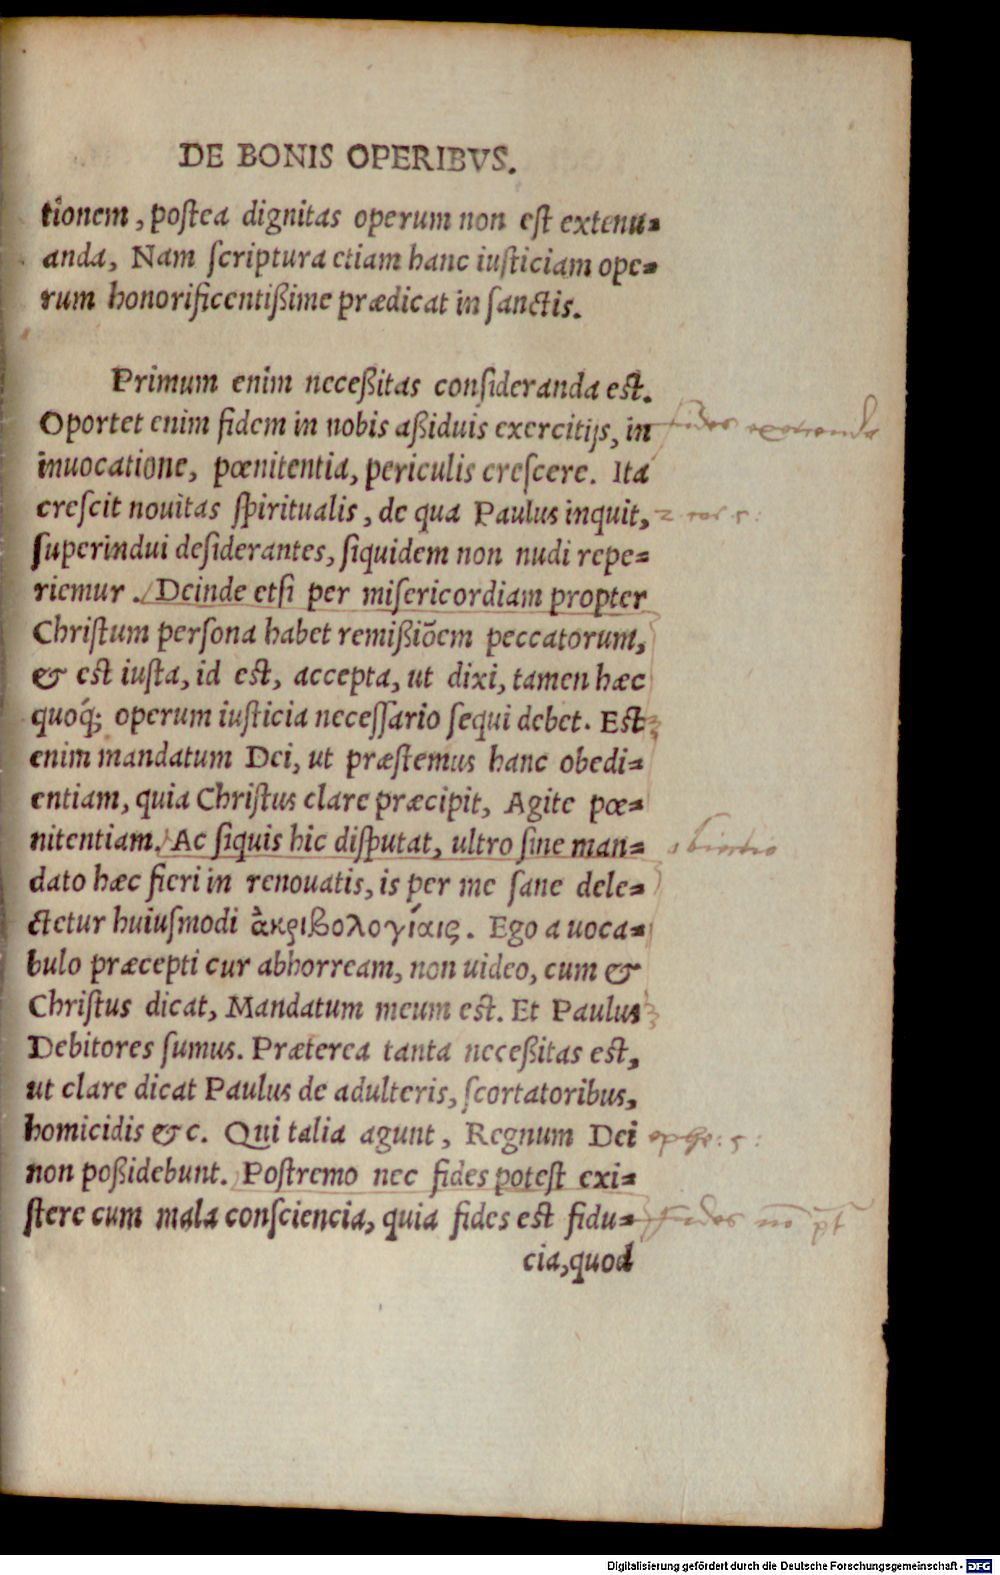 DE BONIS OPERIBVS.
tionem, postea dignitas operum non est extenu=
anda, Nam scriptura etiam hanc iusticiam ope=
rum honorificentißime prædicat in sanctis.
Primum enim neceßitas consideranda est.
Oportet enim fidem in nobis aßiduis exercitijs, in
inuocatione, pœnitentia, periculis crescere. Ita
crescit nouitas spiritualis, de qua Paulus inquit,
2 cor 5:
superindui desiderantes, siquidem non nudi repe=
riemur. Deinde etsi per misericordiam propter
Christum persona habet remißiõem peccatorum,
& est iusta, id est, accepta, ut dixi, tamen hæc
quoq; operum iusticia necessario sequi debet. Est
enim mandatum Dei, ut præstemus hanc obedi=
entiam, quia Christus clare præcipit, Agite pœ=
nitentiam. Ac siquis hic disputat, ultro sine man=
dato hæc fieri in renouatis, is per me sane dele=
ctetur huiusmodi ἀκριβολογίαις. Ego a uoca=
bulo præcepti cur abhorream, non uideo, cum &
Christus dicat, Mandatum meum est. Et Paulus
Debitores sumus. Præterea tanta neceßitas est,
ut clare dicat Paulus de adulteris, scortatoribus,
homicidis &c. Qui talia agunt, Regnum Dei
ephe: 5:
non poßidebunt. Postremo nec fides potest exi=
stere cum mala consciencia, quia fides est fidu=
fides nō
cia, quod
Digitalisierung gefördert durch die Deutsche Forschungsgemeinschaft - DFG